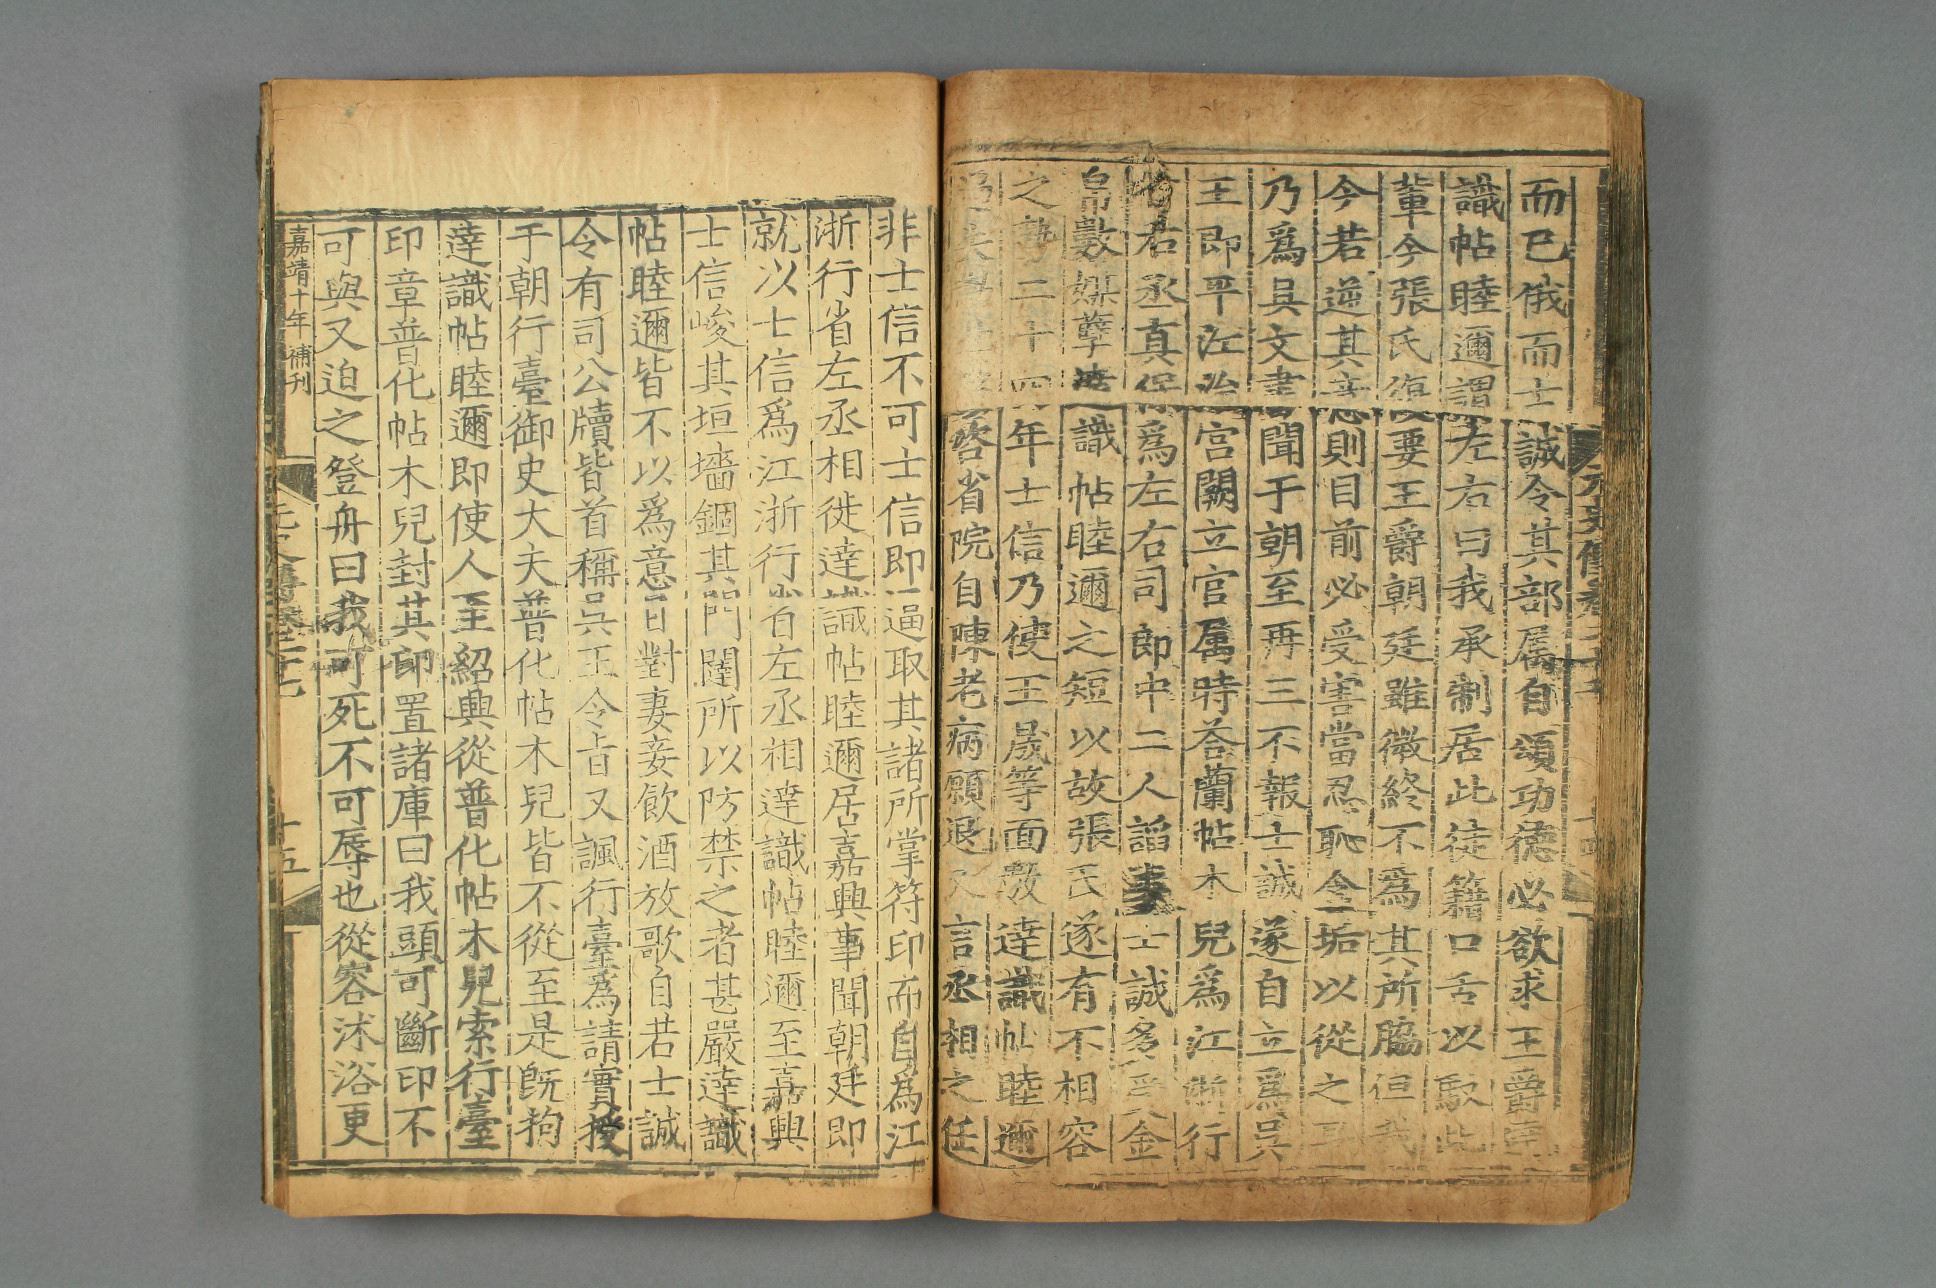 而已俄而士誠令其部属自頌功德必欲求王爵達
識帖睦邇謂左右曰我承制居此徒籍口舌以馭此
輩今張氏復要王爵朝廷雖微終不爲其所脇但我
今若逆其意則目前必受害當忍恥含垢以從之耳
乃爲具文書聞于朝至再三不報士誠遂自立爲吳
王即平江治宮闕立官属時荅蘭帖木兒爲江浙行
省右丞真保爲左右司郎中二人諂事士誠多受金
帛數媒孽達識帖睦邇之短以故張氏遂有不相容
之勢二十四年士信乃使王晟等面數達識帖睦邇
咨省院自陳老病願退又言丞相之任
非士信不可士信即逼取其諸所掌符印而自為江
浙行省左丞相徙達識帖睦邇居嘉興事聞朝廷即
就以士信爲江浙行省左丞相達識帖睦邇至嘉興
士信峻其垣墻錮其門闥所以防禁之者甚嚴達識
帖睦邇皆不以爲意日對妻妾飲酒放歌自若士誠
令有司公牘皆首稱吳王令旨又諷行臺爲請實授
于朝行臺御史大夫普化帖木兒皆不從至是旣拘
達識帖睦邇即使人至紹興從普化帖木兒索行臺
印章普化帖木兒封其印置諸庫曰我頭可斷印不
可與又迫之登舟曰我可死不可辱也從容沐浴更
嘉靖十年補刊
元史傳卷二十七
十五